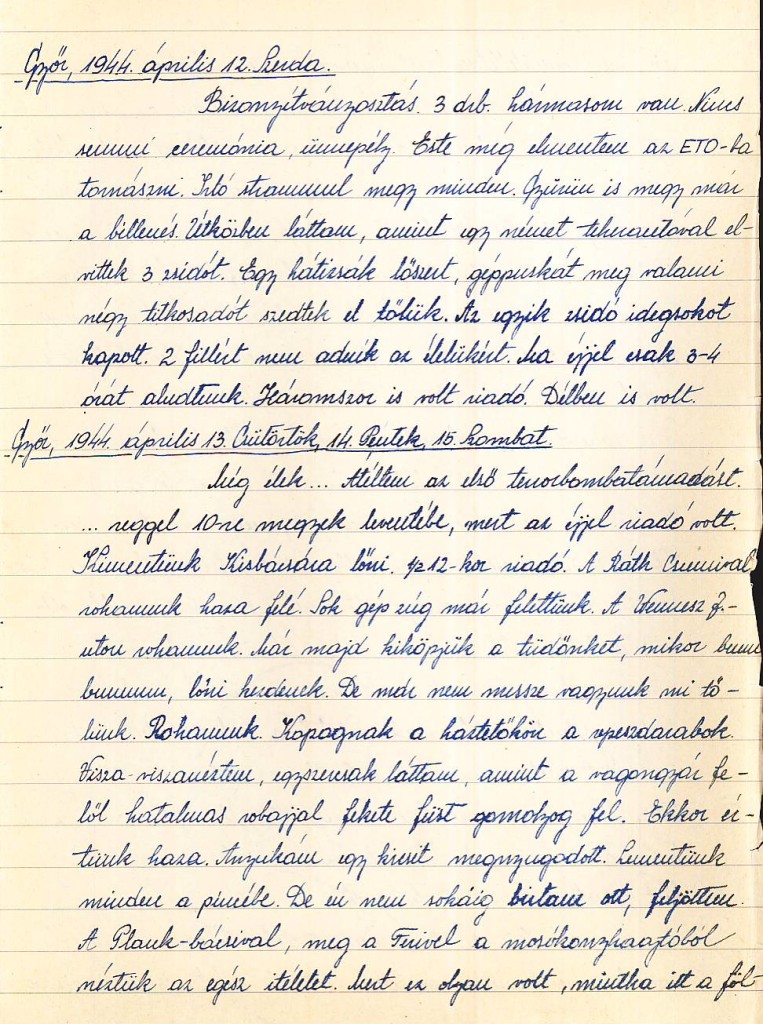 Győr, 1944. április 12. Szerda.
Bizonyítványosztás. 3 drb. hármasom van. Nincs
semmi ceremónia, ünnepély. Este még elmentem az ETO-ba
tornászni. Irtó strammul megy minden. Gyűrün is megy már
a billenés. Útközben láttam, amint egy német teherautóval el-
vittek 3 zsidót. Egy hátizsák lőszert, géppuskát meg valami
négy titkosadót szedtek el tőlük. Az egyik zsidó idegsokot
kapott. 2 fillért nem adnék az életükért. Ma éjjel csak 3-4
órát aludtunk. Háromszor is volt riadó. Délben is volt.
Győr, 1944. április 13. Csütörtök, 14. Péntek, 15. Szombat.
Még élek... Átéltem az első terrorbombatámadást.
... reggel 10-re megyek leventébe, mert az éjjel riadó volt.
Kimentünk Kisbácsára lőni. 1/2 12-kor riadó. A Ráth Csumival
rohanunk haza felé. Sok gép zúg már felettünk. A Wennesz J.-
uton rohanunk. Már majd kiköpjük a tüdőnket, mikor bumm
bummm, lőni kezdenek. De már nem messze vagyunk mi tő-
lünk. Rohanunk. Kopagnak a háztetőkön a repeszdarabok.
Visza-viszanéztem, egyszercsak láttam, amint a vagongyár fe-
lől hatalmas robajjal fekete füst gomolyog fel. Ekkor ér-
tünk haza. Anyukám egy kicsit megnyugodott. Lementünk
minden a pincébe. De én nem sokáig birtam ott, feljöttem.
A Plank-bácsival, meg a Ferivel a mosókonyhaajtóból
néztük az egész itéletet. Mert ez olyan volt, mintha itt a föl-